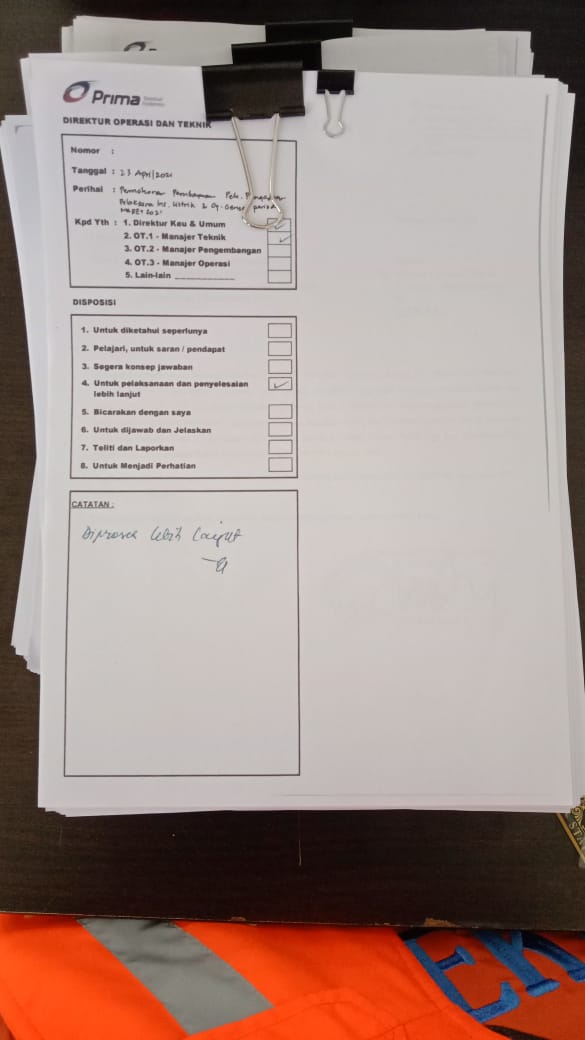 Prima
DIREKTUR OPERASI DAN TEKNIK
Nomor :
Tanggal : 23 April 2021
Perihal : Permohonan Pembayaran Pek.
Pelaksana Ins. Listrik & Op. Genset periode
MARET 2021
Kpd Yth : 1. Direktur Keu & Umum
2. OT.1 - Manajer Teknik
3. OT.2 - Manajer Pengembangan
4. OT.3 - Manajer Operasi
5. Lain-lain ___________
DISPOSISI
1. Untuk diketahui seperlunya
2. Pelajari, untuk saran / pendapat
3. Segera konsep jawaban
4. Untuk pelaksanaan dan penyelesaian
lebih lanjut
5. Bicarakan dengan saya
6. Untuk dijawab dan Jelaskan
7. Teliti dan Laporkan
8. Untuk Menjadi Perhatian
CATATAN :
Diproses lebih lanjut
EK